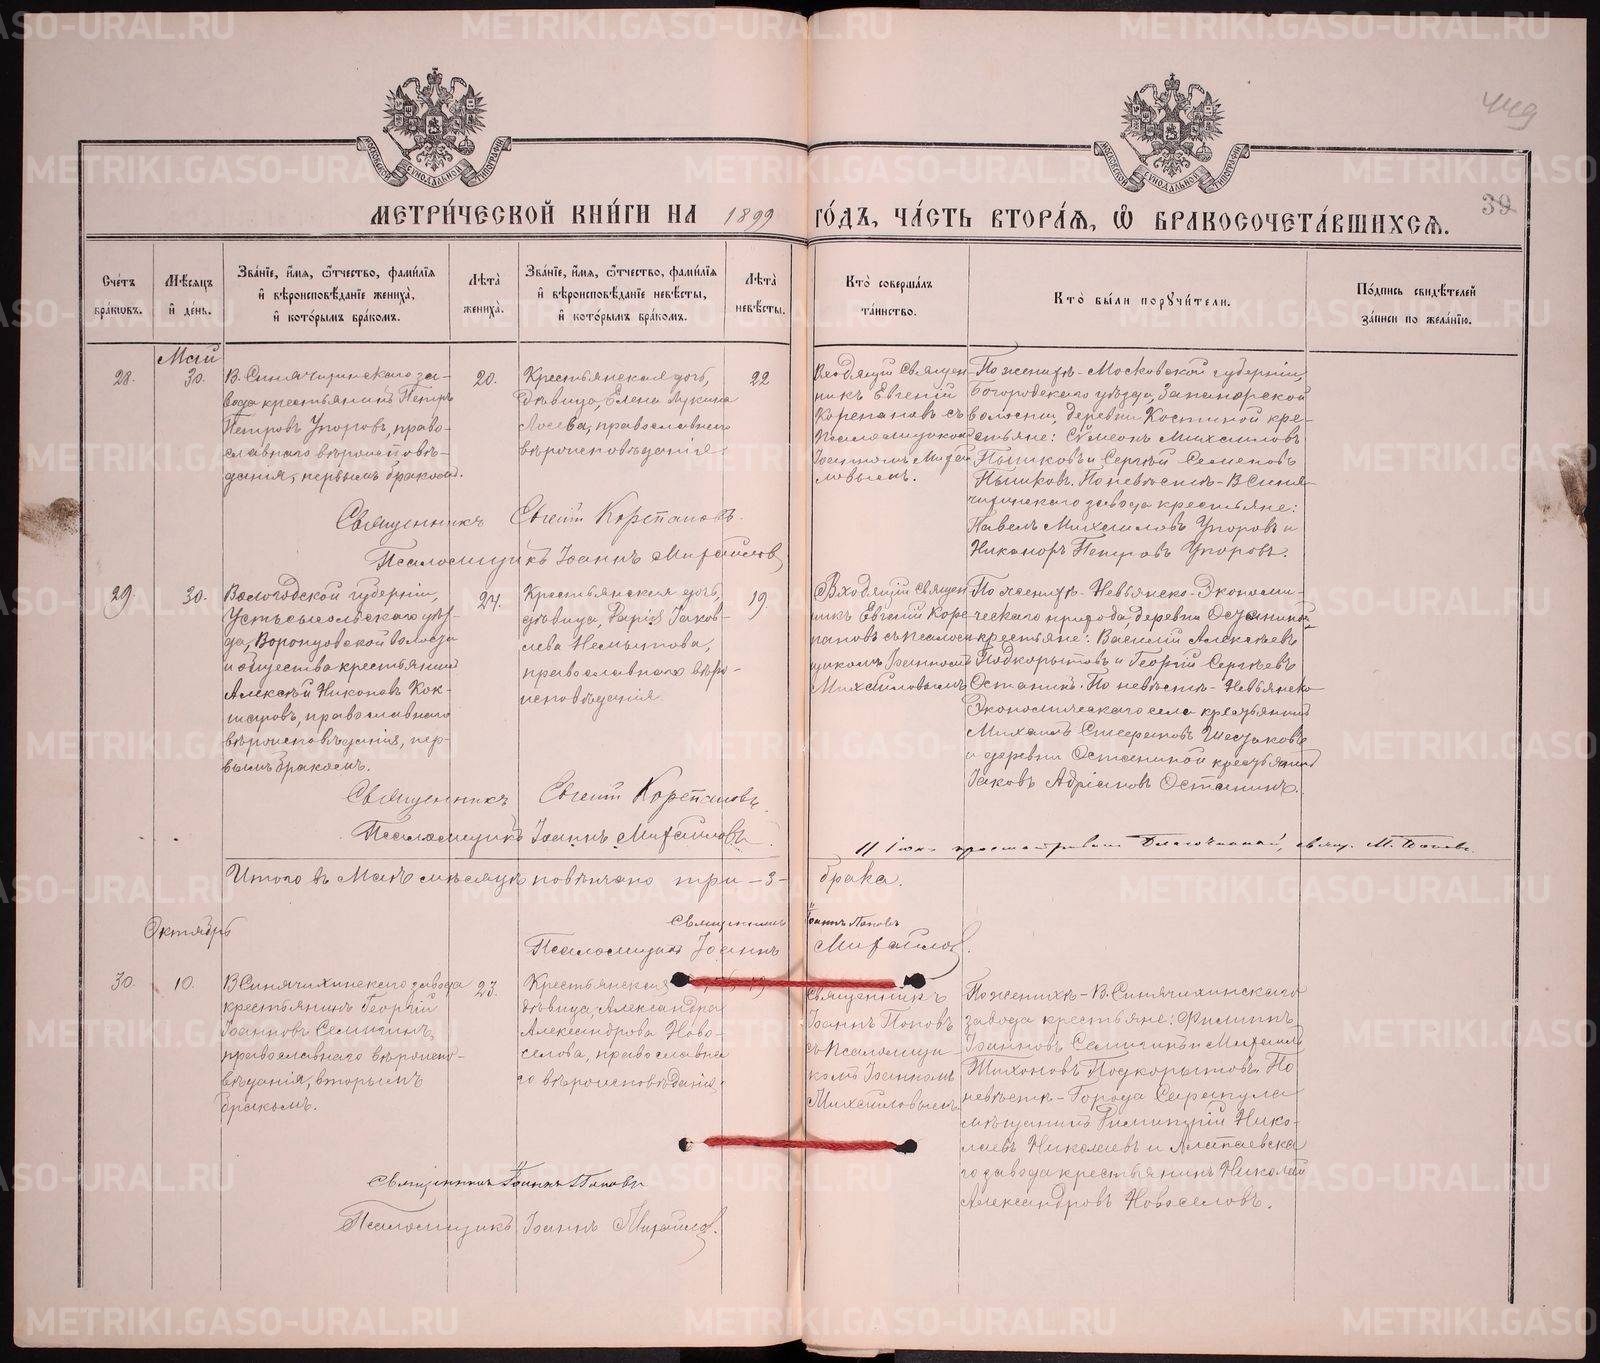 METRIKI.GASO-URAL.RU
39
МЕТРИ́ЧЕСКОЙ КНИ́ГИ НА 1899 ГО́ДЪ, ЧА́СТЬ ВТОРА́Ѧ, Ѡ БРАКОСОЧЕТА́ВШИХСѦ.
Сче́тъ бра́кѡвъ.
Мѣ́сѧцъ и҆ де́нь.
Зва́нїе, и҆́мѧ, ѻ҆́тчество, фамі́лїѧ
и҆ вѣроисповѣ́данїе жениха̀,
и҆ кото́рымъ бра́комъ.
Лѣта̀ жениха̀.
Зва́нїе, и҆́мѧ, ѻ҆́тчество, фамі́лїѧ
и҆ вѣроисповѣ́данїе невѣ́сты,
и҆ кото́рымъ бра́комъ.
Лѣта̀ невѣ́сты.
Кто̀ соверша́лъ
та́инство.
Кто̀ бы́ли порꙋчи́тели.
По́дпись свидѣ́телей
за́писи по жела́нїю.
Май
28.
30.
В. Синячихинскаго за-
вода крестьянинъ Петръ
Петровъ Упоровъ, право-
славнаго вѣроисповѣ-
данія, первымъ бракомъ.
20.
Крестьянская дочь,
дѣвица, Елена Лукина
Лосева, православнаго
вѣроисповѣданія.
22
Входящій священ-
никъ Евгеній
Корепановъ съ
псаломщикомъ
Іоанномъ Михай-
ловымъ.
По женихѣ - Московской губерніи,
Богородскаго уѣзда, Запонорской
волости, деревни Костиной кре-
стьяне: Сѵмеонъ Михаиловъ
Пышковъ и Сергѣй Семеновъ
Пышковъ. По невѣстѣ - В. Синя-
чихинскаго завода крестьяне:
Павелъ Михаиловъ Упоровъ и
Никаноръ Петровъ Упоровъ.
Священникъ Евгеній Корепановъ.
Псаломщикъ Іоаннъ Михайловъ
29
30.
Вологодской губерніи,
Устьсысольскаго уѣз-
да, Воронцовской волости
и общества крестьянинъ
Алексѣй Никоновъ Кок-
шаровъ, православнаго
вѣроисповѣданія, пер-
вымъ бракомъ.
24.
Крестьянская дочь,
дѣвица, Дарія Іаков-
лева Немытова,
православнаго вѣро-
исповѣданія.
19.
Входящій священ-
никъ Евгеній Коре-
пановъ съ псалом-
щикомъ Іоанномъ
Михайловымъ
По женихѣ - Невьянско-Экономи-
ческаго прихода, деревни Останиной
крестьяне: Василій Алексѣевъ
Подкорытовъ и Георгій Сергѣевъ
Останинъ. По невѣстѣ - Невьянско-
Экономическаго села крестьянинъ
Михаилъ Стефановъ Шестаковъ
и деревни Останиной крестьянинъ
Іаковъ Адріановъ Останинъ.
Священникъ Евгеній Корепановъ
Псаломщикъ Іоаннъ Михайловъ
11 Іюня просматривалъ Благочинный, свящ. М. Поповъ.
Итого въ Маѣ мѣсяцѣ повѣнчано три - 3 - брака.
Священникъ Іоаннъ Поповъ
Псаломщикъ Іоаннъ Михайловъ.
Октябрь
30.
10.
В. Синячихинскаго завода
крестьянинъ Георгій
Іоанновъ Семичинъ,
православнаго вѣроиспо-
вѣданія, вторымъ
бракомъ.
23.
Крестьянская
дѣвица, Александра
Александрова Ново-
селова, православна-
го вѣроисповѣданія.
19
Священникъ
Іоаннъ Поповъ
съ псаломщи-
комъ Іоанномъ
Михайловымъ
По женихѣ - В. Синячихинскаго
завода крестьяне: Филиппъ
Іоанновъ Семичинъ и Михаилъ
Тихоновъ Подкорытовъ. По
невѣстѣ - Города Сарапула
мѣщанинъ Димитрій Нико-
лаевъ Николаевъ и Алапаевска-
го завода крестьянинъ Николай
Александровъ Новоселовъ.
Священникъ Іоаннъ Поповъ
Псаломщикъ Іоаннъ Михайловъ.